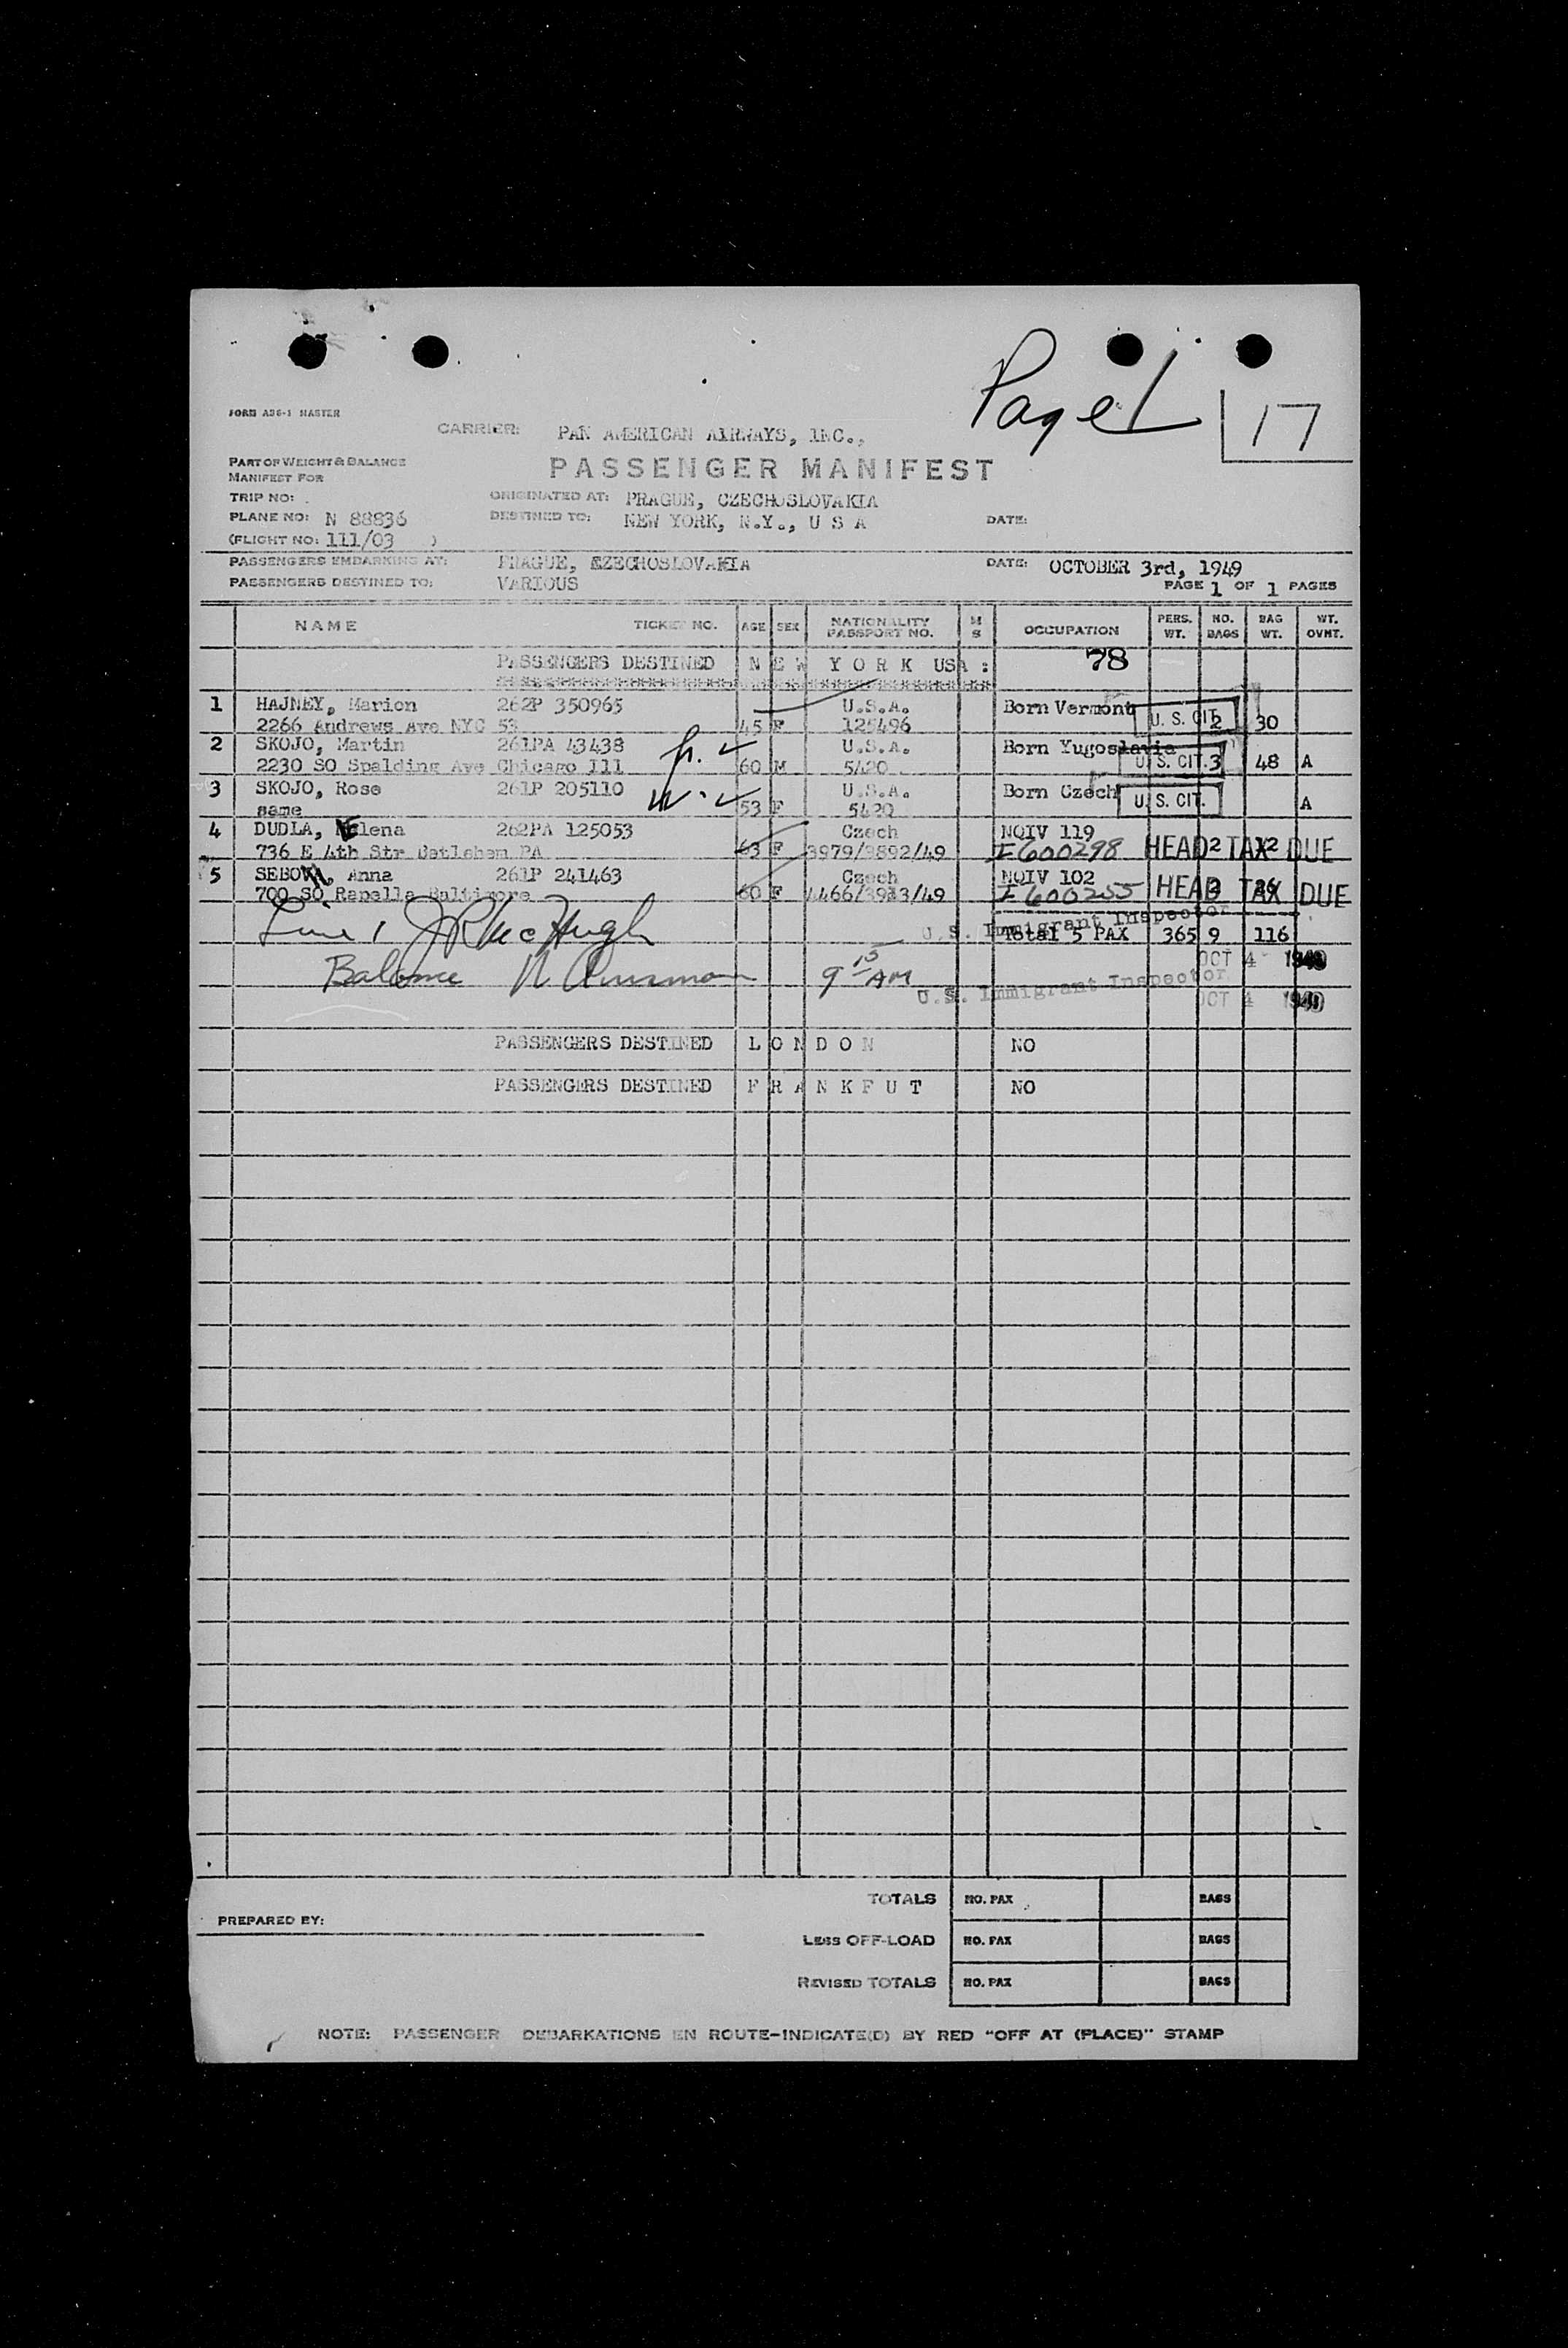 Page 1
17
FORM A36-1 MASTER
CARRIER: PAN AMERICAN AIRWAYS, INC.,
PART OF WEIGHT & BALANCE
MANIFEST FOR
PASSENGER MANIFEST
TRIP NO:
ORIGINATED AT: PRAGUE, CZECHOSLOVAKIA
PLANE NO: N 88836
DESTINED TO: NEW YORK, N.Y., U S A
DATE:
(FLIGHT NO: 111/03 )
PASSENGERS EMBARKING AT: PRAGUE, CZECHOSLOVAKIA DATE: OCTOBER 3rd, 1949
PASSENGERS DESTINED TO: VARIOUS PAGE 1 OF 1 PAGES
NAME TICKET NO. AGE SEX NATIONALITY PASSPORT NO. M S OCCUPATION PERS. WT. NO. BAGS BAG WT. WT. OVHT.
PASSENGERS DESTINED N E W Y O R K USA : 78
1 HAJNEY, Marion 262P 350965 U.S.A. Born Vermont U. S. CIT.
2266 Andrews Ave NYC 53 45 F 125496 2 30
2 SKOJO, Martin 261PA 43438 U.S.A. Born Yugoslavia
2230 SO Spalding Ave Chicago Ill 60 M 5420 U. S. CIT. 3 48 A
3 SKOJO, Rose 261P 205110 U.S.A. Born Czech U. S. CIT.
same 53 F 5420 A
4 DUDLA, Helena 262PA 125053 Czech NQIV 119
736 E 4th Str Betlehem PA 63 F 3979/3892/49 I-600298 HEAD TAX DUE 2 12
5 SEBOVA, Anna 261P 241463 Czech NQIV 102
700 SO Rapella Baltimore 60 F 4466/3933/49 I-600255 HEAD TAX DUE 2 26
Line 1 J R McHugh
U.S. Immigrant Inspector
Total 5 PAX 365 9 116
OCT 4
Balance 9 15 AM
U.S. Immigrant Inspector
OCT 4
PASSENGERS DESTINED L O N D O N NO
PASSENGERS DESTINED F R A N K F U T NO
TOTALS NO. PAX BAGS
PREPARED BY:
LESS OFF-LOAD NO. PAX BAGS
REVISED TOTALS NO. PAX BAGS
NOTE: PASSENGER DEBARKATIONS EN ROUTE-INDICATE(D) BY RED "OFF AT (PLACE)" STAMP